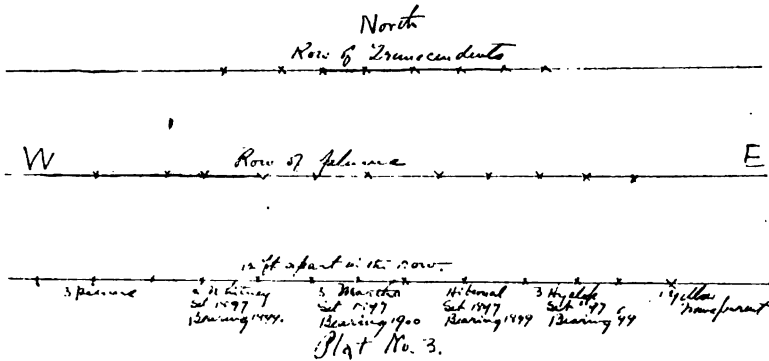 North
Row of Transcendents
W
Row of
E
12 ft apart in the row.
3
Whitney
Set 1897
Bearing 1899.
3 Martha
Set 1897
Bearing 1900
Hibernal
Set 1897
Bearing 1899
3 Hyslop
Set '97
Bearing '99
1 Yellow
Transparent
Plat No. 3.